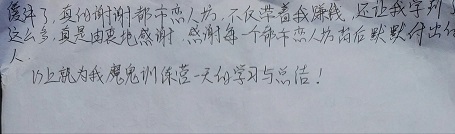 值得了,真的谢谢都市恋人坊,不仅带着我赚钱,还让我学到
这么多,真是由衷地感谢.感谢每一个都市恋人坊背后默默付出的
人.
以上就为我魔鬼训练营一天的学习与总结!